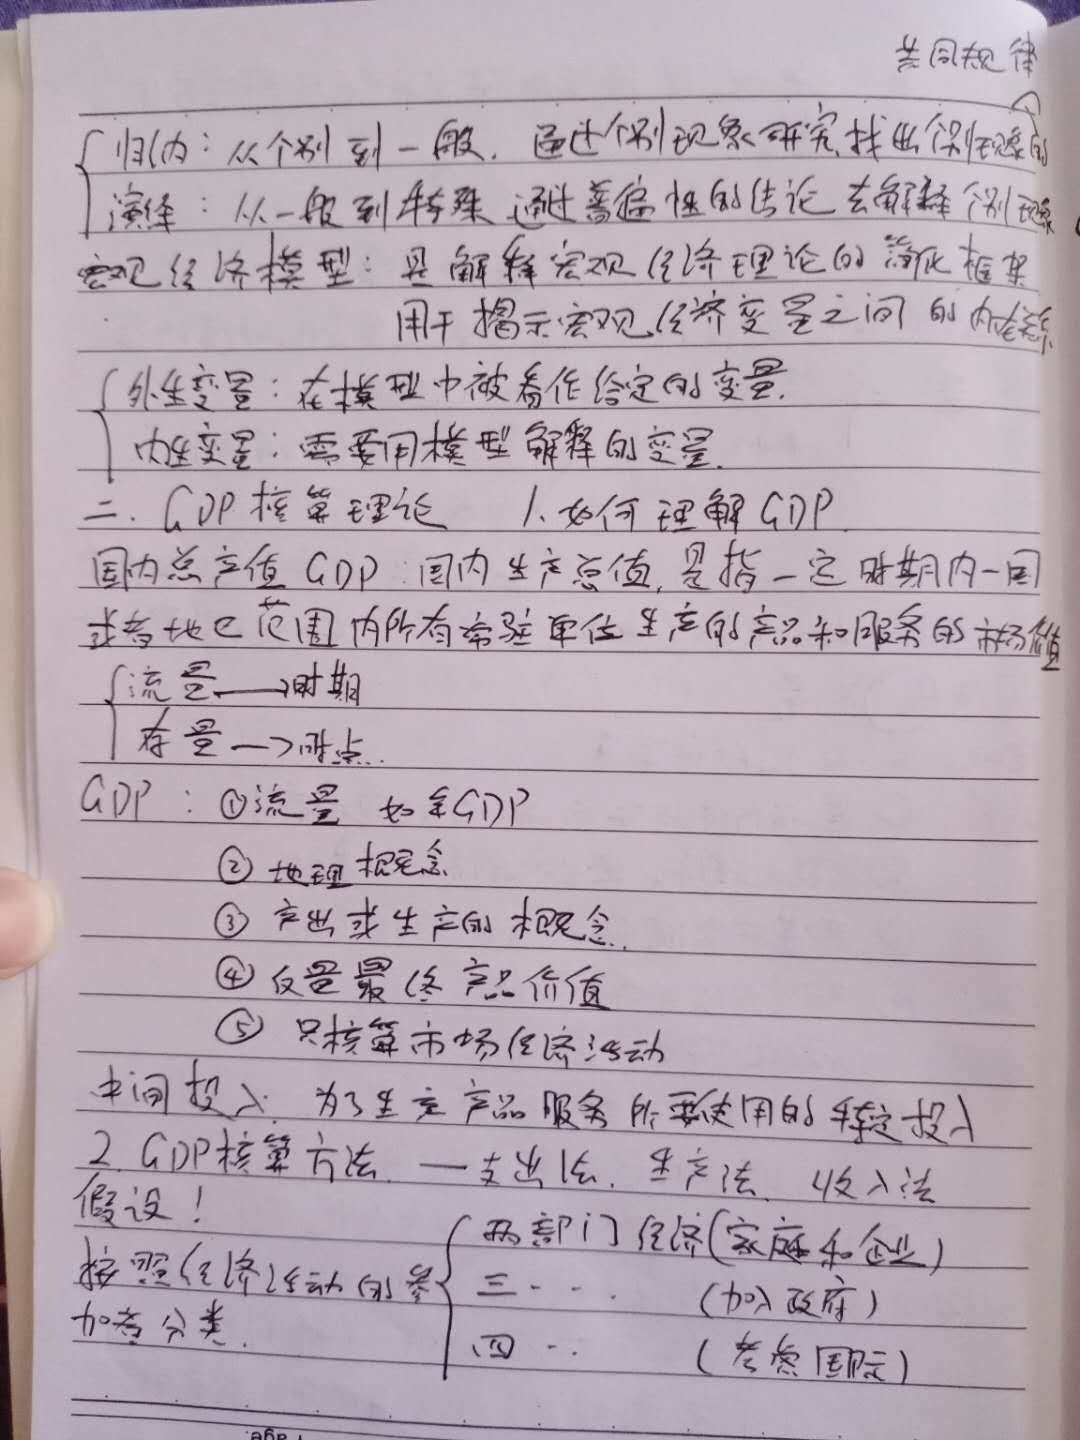 共同规律
归纳：从个别到一般．通过个别现象研究，找出个别现象的
演绎：从一般到特殊 通过普遍性的结论去解释个别现象
宏观经济模型：是解释宏观经济理论的简化框架
用于揭示宏观经济变量之间的内在关系
外生变量：在模型中被看作给定的变量．
内生变量：需要用模型解释的变量．
二．GDP核算理论 1.如何理解GDP
国内总产值GDP：国内生产总值，是指一定时期内一国
或者地区范围内所有常驻单位生产的产品和服务的市场价值
流量⟶时期
存量⟶时点．
GDP：①流量 如年GDP
②地理概念
③产出或生产的概念．
④仅是最终产品价值
⑤只核算市场经济活动
中间投入：为了生产产品服务所要使用的特定投入
2.GDP核算方法．—支出法．生产法．收入法
假设！
按照经济活动的参
加者分类．
两部门经济(家庭和企业)
三···· (加入政府)
四··· (考虑国际)
Page